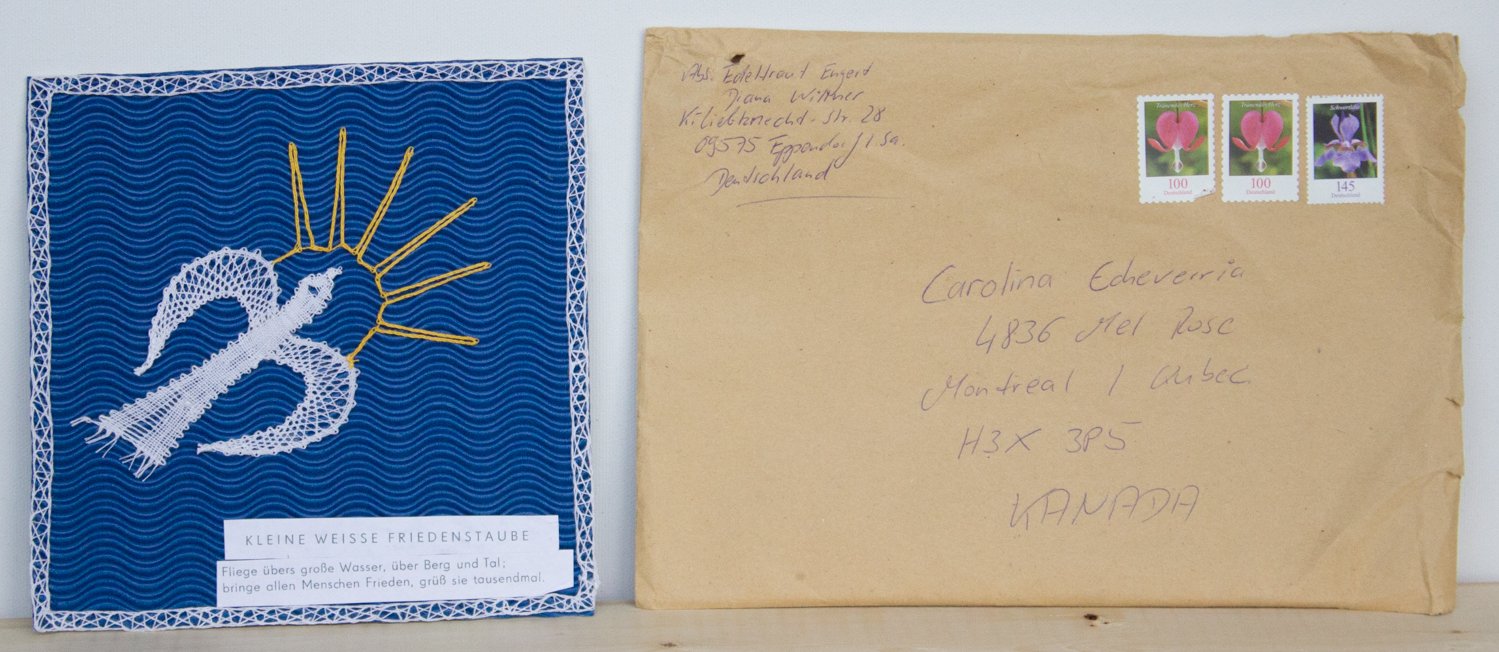 KLEINE WEISSE FRIEDENSTAUBE
Fliege übers große Wasser, über Berg und Tal;
bringe allen Menschen Frieden, grüß sie tausendmal.
Abs. Edeltraut Engert
Diana Wittner
K.-Liebknecht-Str. 28
09575 Eppendorf/i.Sa.
Deutschland
Tränendes Herz
100
Deutschland
Tränendes Herz
100
Deutschland
Schwertlilie
145
Deutschland
Carolina Echeverria
4836 Mel Rose
Montreal / Qubec
H3X 3P5
KANADA